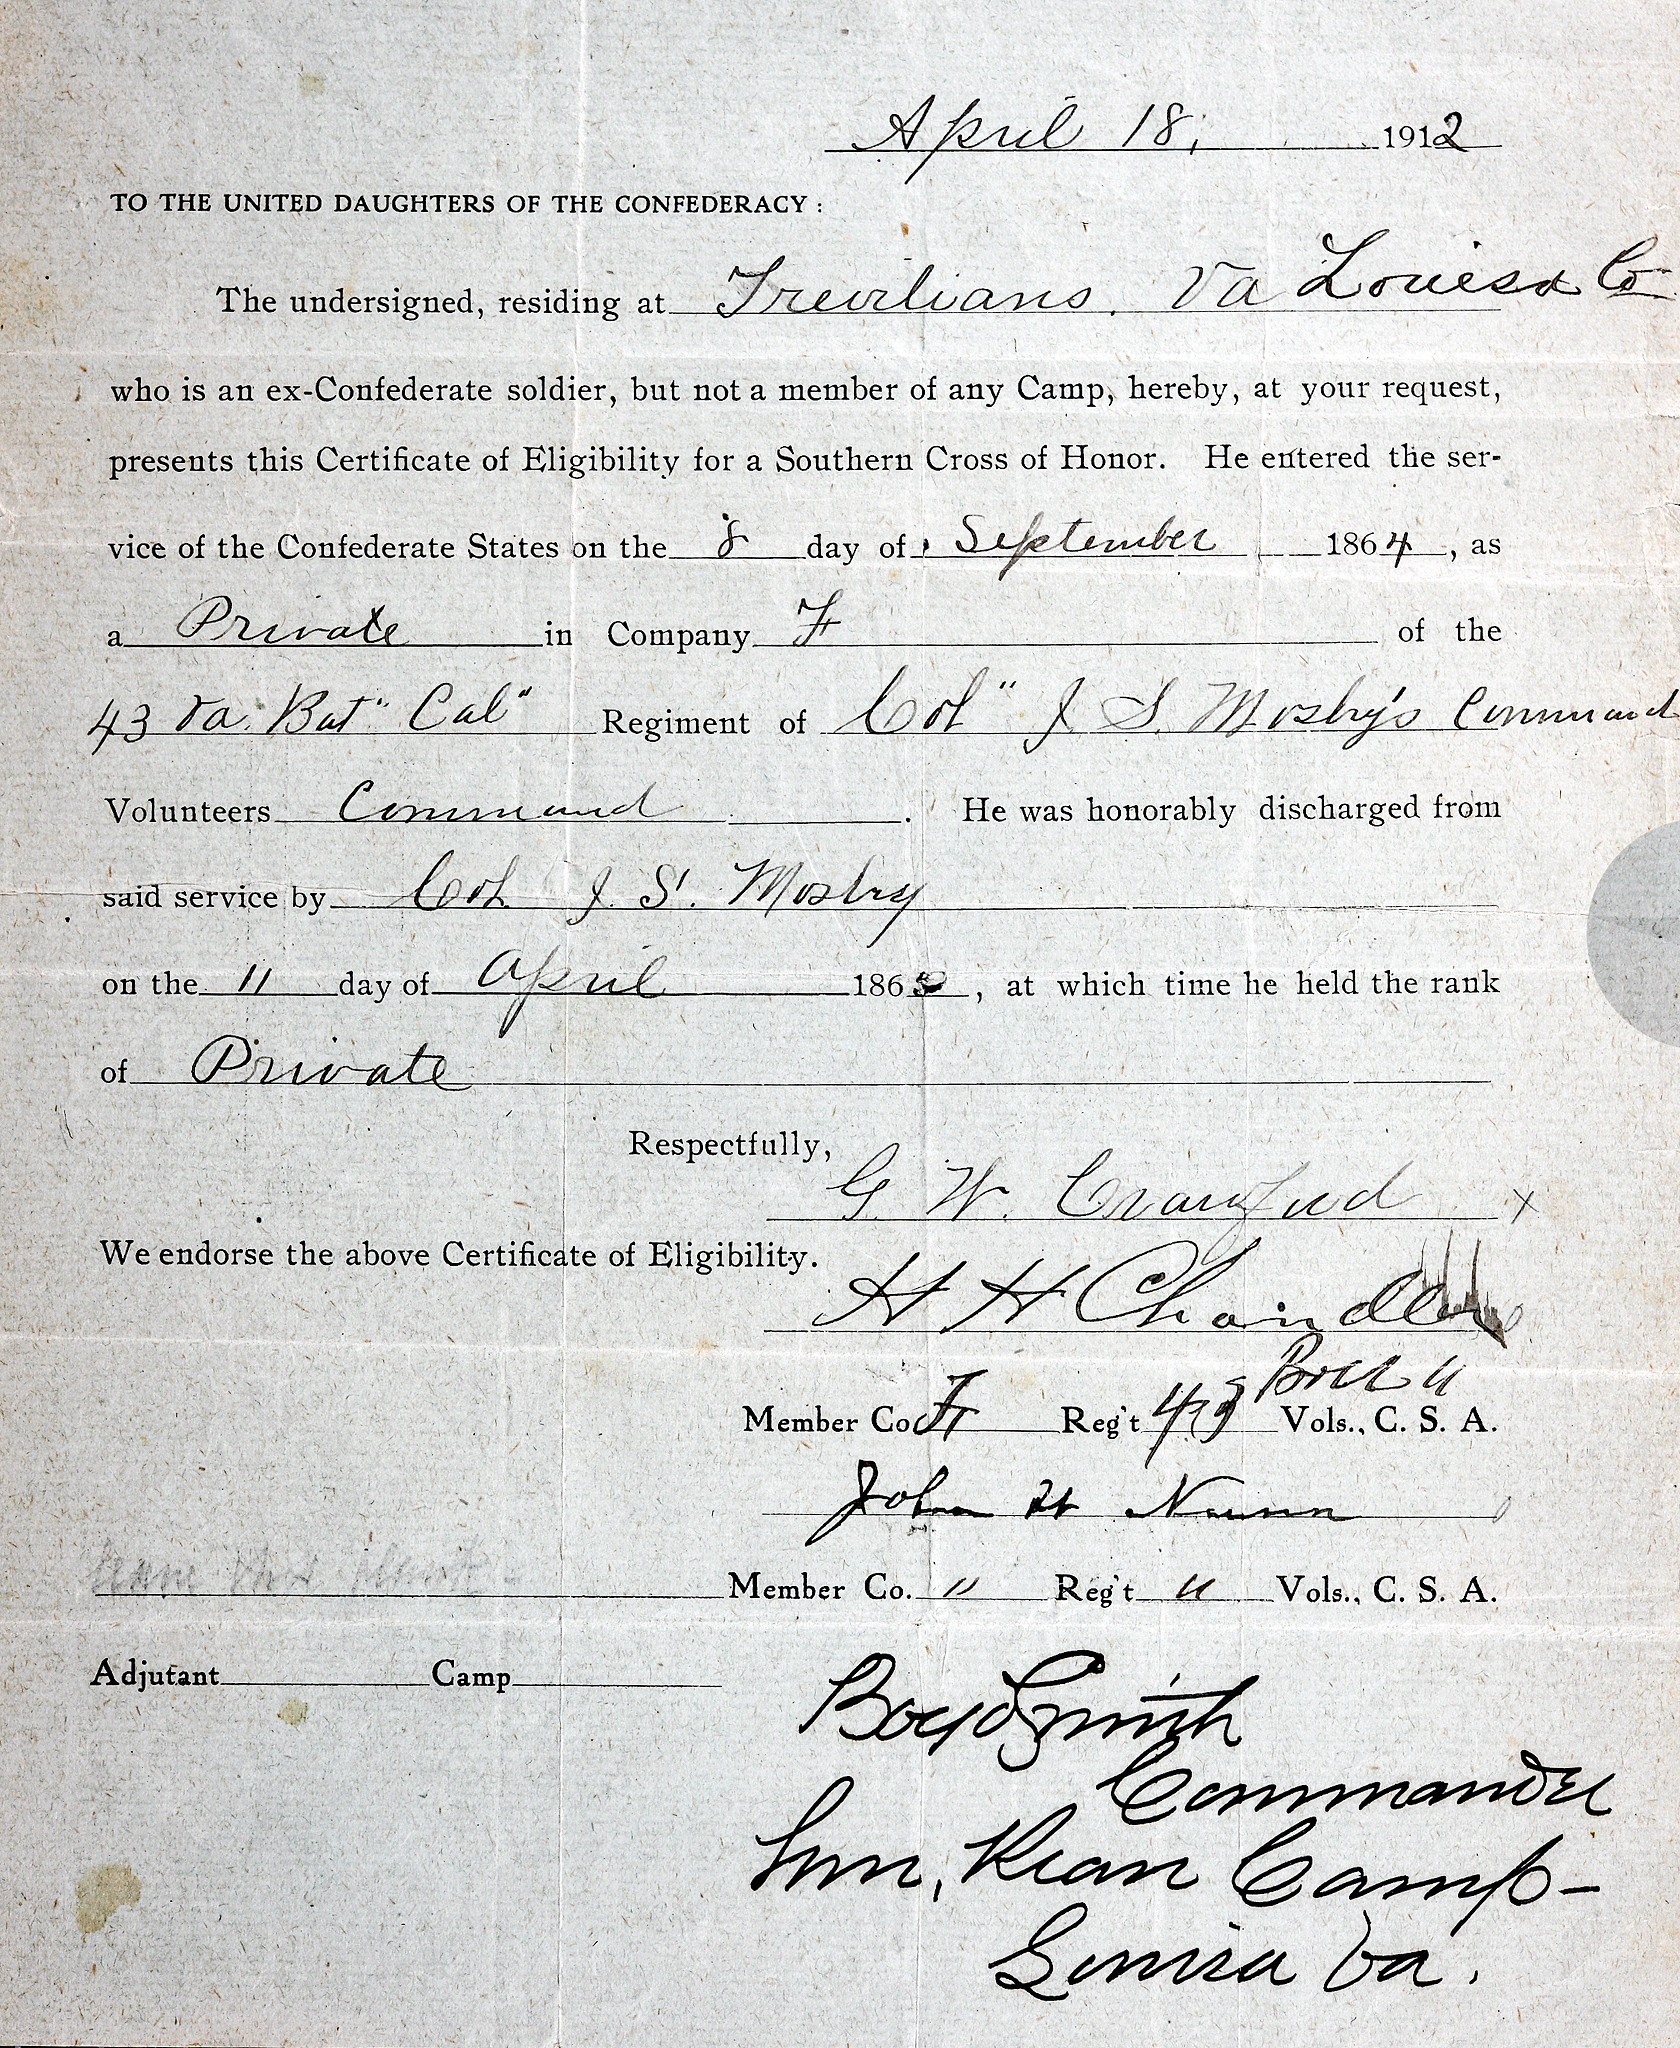 April 18, 1912
TO THE UNITED DAUGHTERS OF THE CONFEDERACY :
The undersigned, residing at Trevilians. Va Louisa Co
who is an ex-Confederate soldier, but not a member of any Camp, hereby, at your request,
presents this Certificate of Eligibility for a Southern Cross of Honor. He entered the ser-
vice of the Confederate States on the 8 day of September 1864, as
a Private in Company F of the
43 Va. Bat" Cal" Regiment of Col" J S. Mosby's Command
Volunteers Command. He was honorably discharged from
said service by Col J. S. Mosby
on the 11 day of April 1865, at which time he held the rank
of Private
Respectfully,
G. W. Crawford x
We endorse the above Certificate of Eligibility.
H H Chandler
Batt "
Member Co F Reg't 43 Vols., C. S. A.
John H Nunn
Member Co. " Reg't " Vols., C. S. A.
Adjutant Camp
Boyd Smith
Commander
Wm, Kean Camp-
Louisa Va.